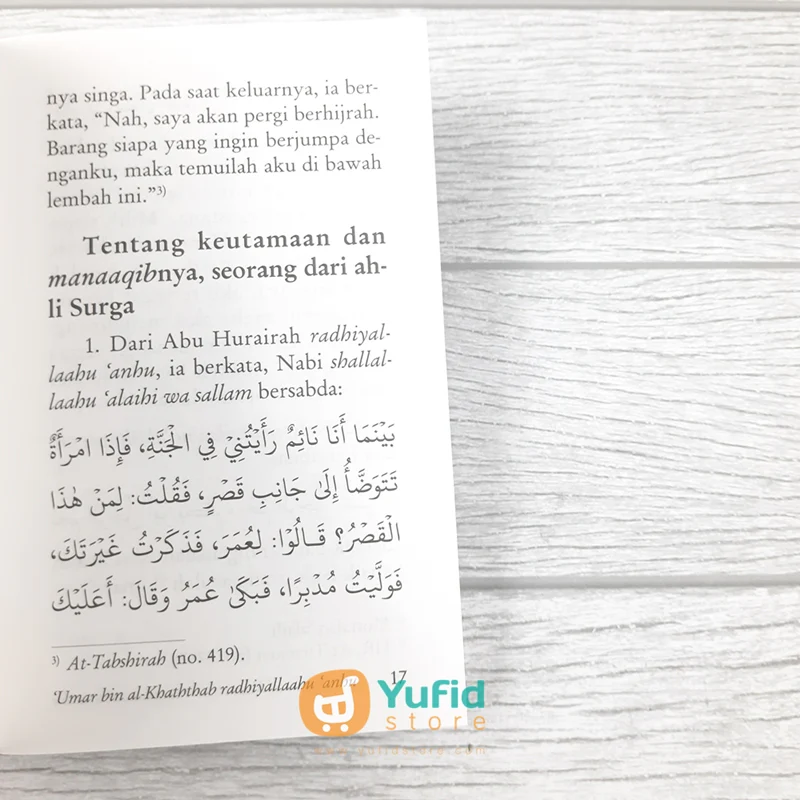 nya singa. Pada saat keluarnya, ia ber-
kata, “Nah, saya akan pergi berhijrah.
Barang siapa yang ingin berjumpa de-
nganku, maka temuilah aku di bawah
lembah ini.”³⁾
Tentang keutamaan dan
manaaqibnya, seorang dari ah-
li Surga
1. Dari Abu Hurairah radhiyal-
laahu ‘anhu, ia berkata, Nabi shallal-
laahu ‘alaihi wa sallam bersabda:
بَيْنَمَا أَنَا نَائِمٌ رَأَيْتُنِيْ فِي الْجَنَّةِ، فَإِذَا امْرَأَةٌ
تَتَوَضَّأُ إِلَىٰ جَانِبِ قَصْرٍ، فَقُلْتُ: لِمَنْ هٰذَا
الْقَصْرُ؟ قَالُوْا: لِعُمَرَ، فَذَكَرْتُ غَيْرَتَكَ،
فَوَلَّيْتُ مُدْبِرًا، فَبَكَىٰ عُمَرُ وَقَالَ: أَعَلَيْكَ
³⁾ At-Tabshirah (no. 419).
‘Umar bin al-Khaththab radhiyallaahu ‘anhu 17
Yufid
store
www.yufidstore.com